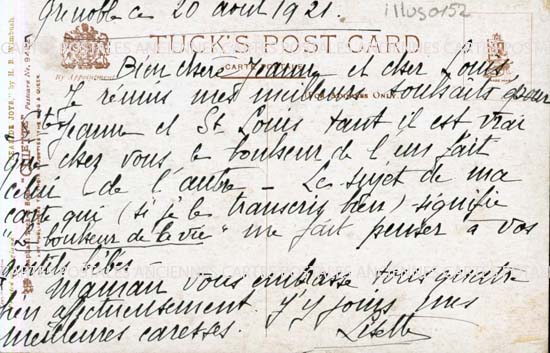 Grenoble ce 20 août 1921.
illus0152
TUCK'S POST CARD
By Appointment
CARTE POSTALE
FOR ADDRESS ONLY.
Bien chère Jeanne et cher Louis
Je réunis mes meilleurs souhaits pour
Ste Jeanne et St Louis tant il est vrai
que chez vous le bonheur de l'un fait
celui de l'autre – Le sujet de ma
carte qui (si je le transcris bien) signifie
"le bonheur de la vie" me fait penser à vos
gentils bébés
Maman vous embrasse tous quatre
bien affectueusement. J'y joins mes
meilleures caresses. Lisette